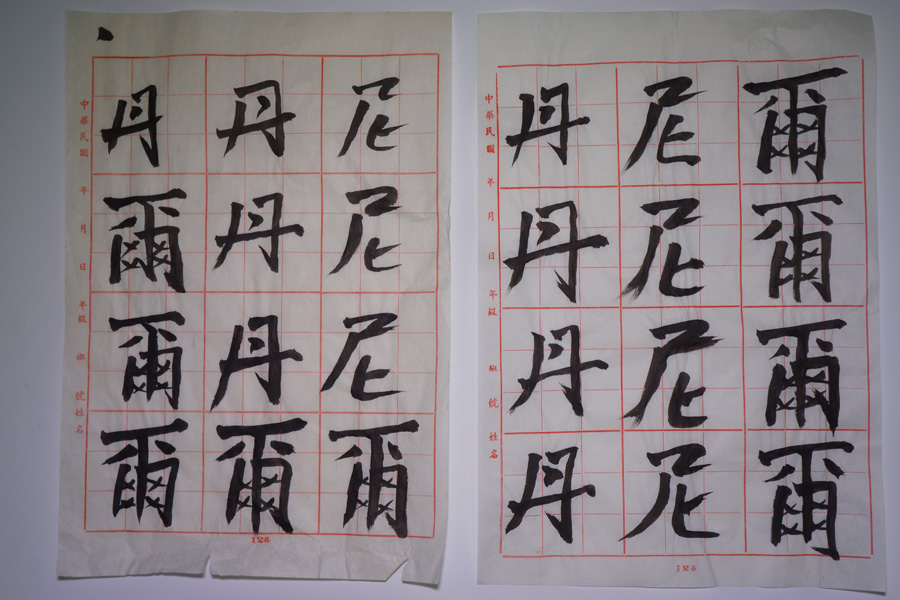 中華民國 年 月 日 年級 班 號 姓名
丹丹尼
爾丹尼
爾丹尼
爾爾爾
126
中華民國 年 月 日 年級 班 號 姓名
丹尼爾
丹尼爾
丹尼爾
丹尼爾
126